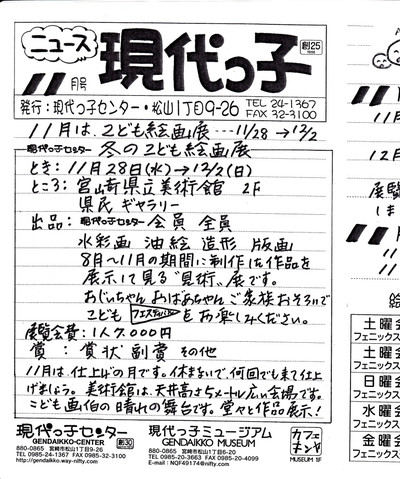 ニュース
現代っ子
創25
11月号
発行：現代っ子センター・松山1丁目9-26
TEL 24-1367
FAX 32-3100
11月は、こども絵画展…11/28→12/2
現代っ子センター 冬のこども絵画展
とき：11月28日(水)→12/2(日)
ところ：宮崎県立美術館 2F
県民ギャラリー
出品：現代っ子センター 会員 全員
水彩画 油絵 造形 版画
8月〜11月の期間に制作した作品を
展示して見る〝見術〟展です。
おじいちゃん おばあちゃん ご家族おそろいで
こども フェスティバル をお楽しみください。
展覧会費：1人7,000円
賞：賞状 副賞 その他
11月は仕上げの月です。休まないで、何回でも来て仕上
げましょう。美術館は、天井高さ5メートル広い会場です。
こども画伯の晴れの舞台です。堂々と作品展示！
現代っ子センター
GENDAIKKO-CENTER
創30
880-0865 宮崎市松山1丁目9-26
TEL 0985-24-1367 FAX 0985-32-3100
http://gendaikko.way-nifty.com/
現代っ子ミュージアム
GENDAIKKO MUSEUM
880-0865 宮崎市松山1丁目6-20
TEL 0985-20-4099
E-mail : NQF49174@nifty.com
カフェ
MUSEUM 1F
11月
12月
展覧
しま
絵
土曜会
フェニックス
土曜会
フェニックス
日曜会
フェニックス
水曜会
フェニックス
金曜会
フェニックス